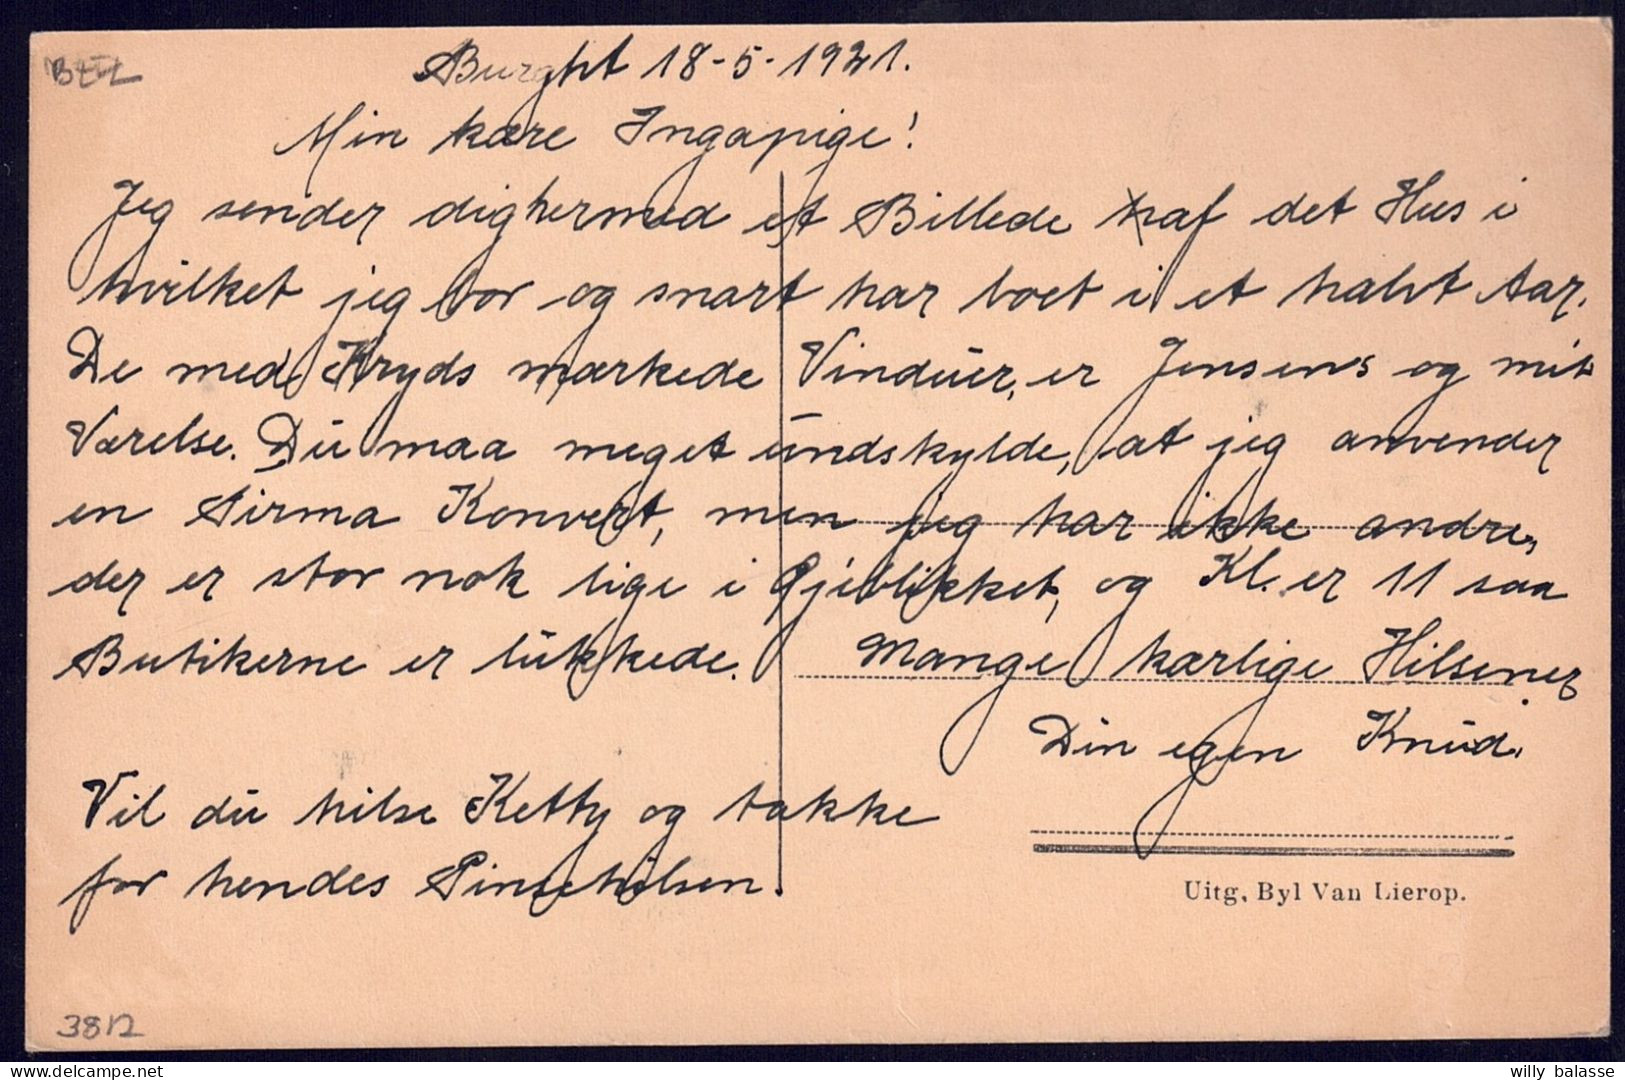 BEL
Burght 18-5-1921.
Min kære Ingapige!
Jeg sender dig hermed et Billede af det Hus i
hvilket jeg bor og snart har boet i et halvt Aar.
De med Kryds mærkede Vinduer, er Jensens og mit
Værelse. Du maa meget undskylde, at jeg anvender
en Firma Konvert, men jeg har ikke andre,
der er stor nok lige i Øjeblikket, og Kl. er 11 saa
Butikerne er lukkede. Mange kærlige Hilsener
Din egen Knud.
Vil du hilse Ketty og takke
for hendes Pinsehilsen.
Uitg. Byl Van Lierop.
3812
delcampe.net
willy balasse